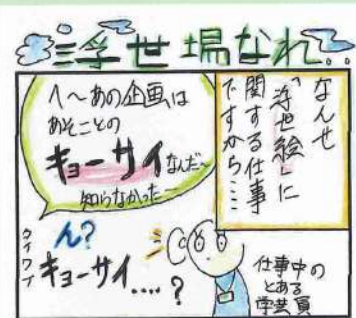 浮世場なれ…
なんせ
「浮世絵」に
関する仕事
ですから……
へ〜あの企画は
あそことの
キョーサイなんだ〜
知らなかったー
ワイワイ
ん?
キョーサイ....?
仕事中の
とある
学芸員